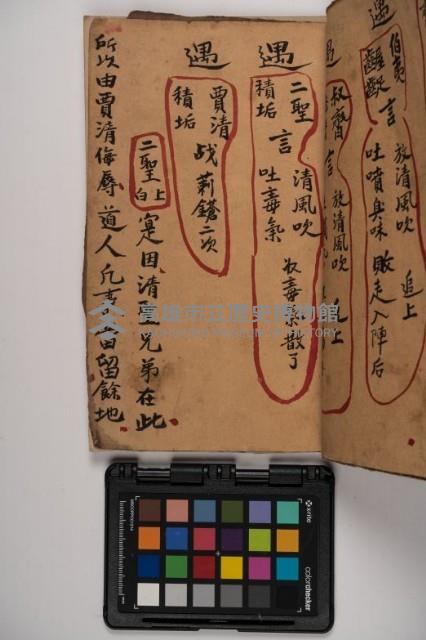 遇
伯夷 言 放清風吹 追上
齷齪 吐噴臭味 敗走入陣后
遇
叔齊言 放清風吹 追上
遇
二聖 言 清風吹 毒氣散了
積垢 吐毒氣
遇
賈清 战 莿鎗二次
積垢
二聖 白上 寔因清聖兄弟在此
所以由賈清侮辱道人凡事當留餘地
高雄市立歷史博物館
KAOHSIUNG MUSEUM OF HISTORY
x-rite
colorchecker